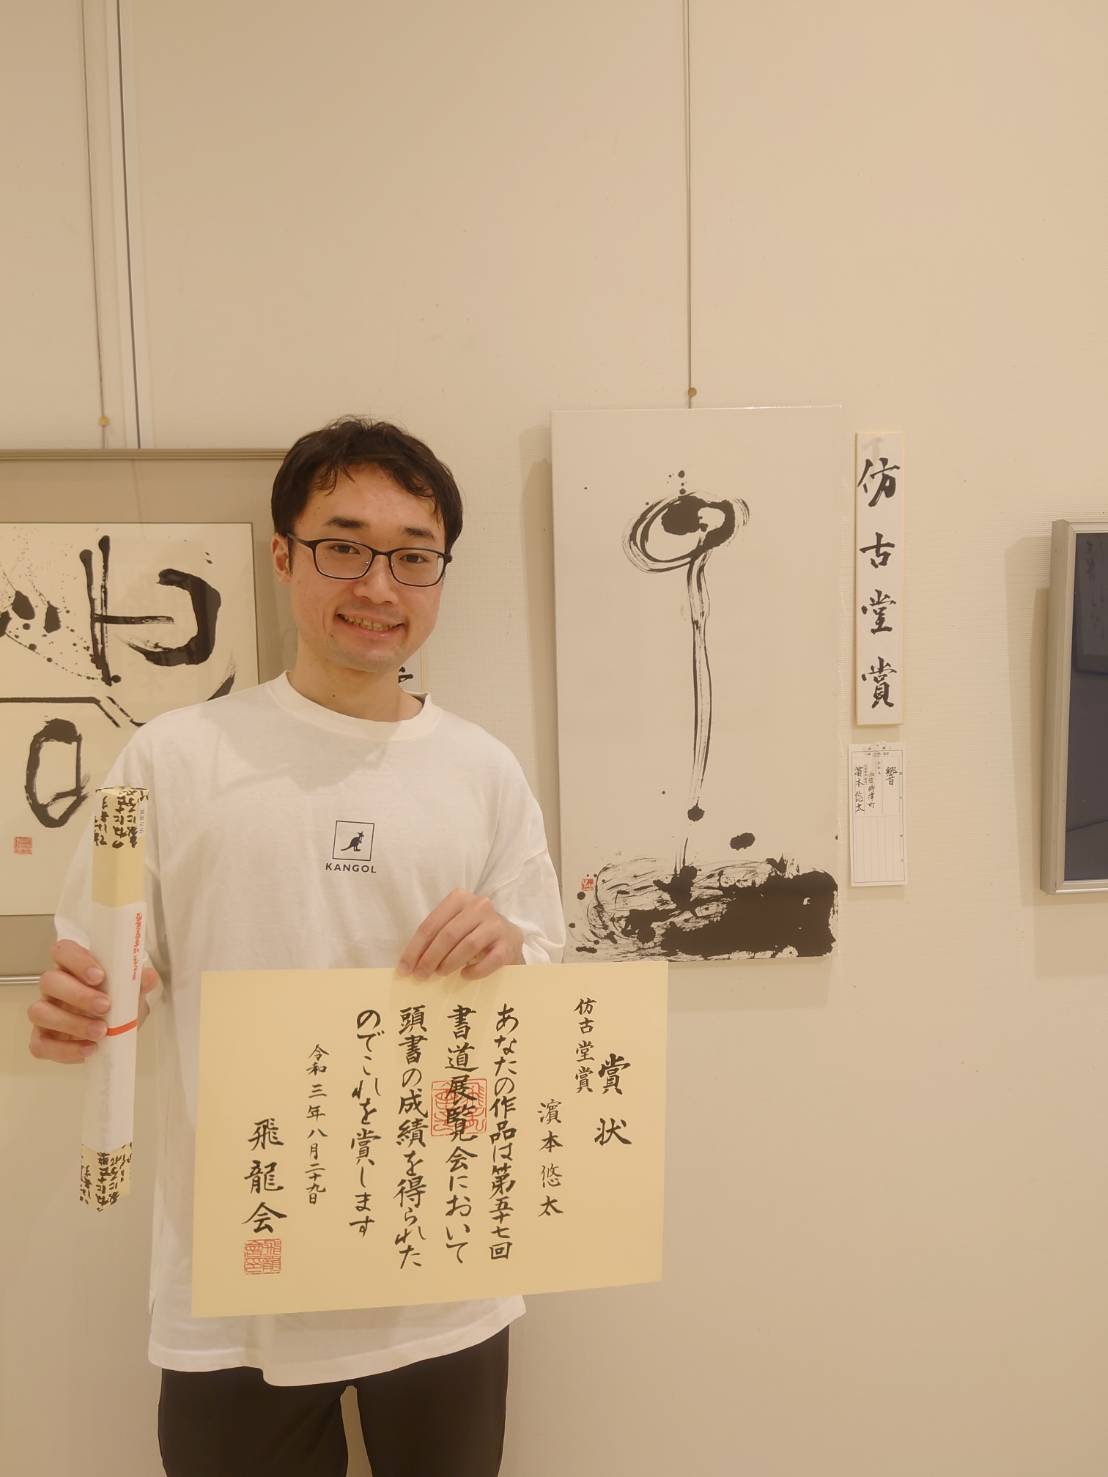 仿古堂賞
響
濱本悠太
KANGOL
賞状
仿古堂賞
濱本悠太
あなたの作品は第五十七回
書道展覧会において
頭書の成績を得られた
のでこれを賞します
令和三年八月二十九日
飛龍会